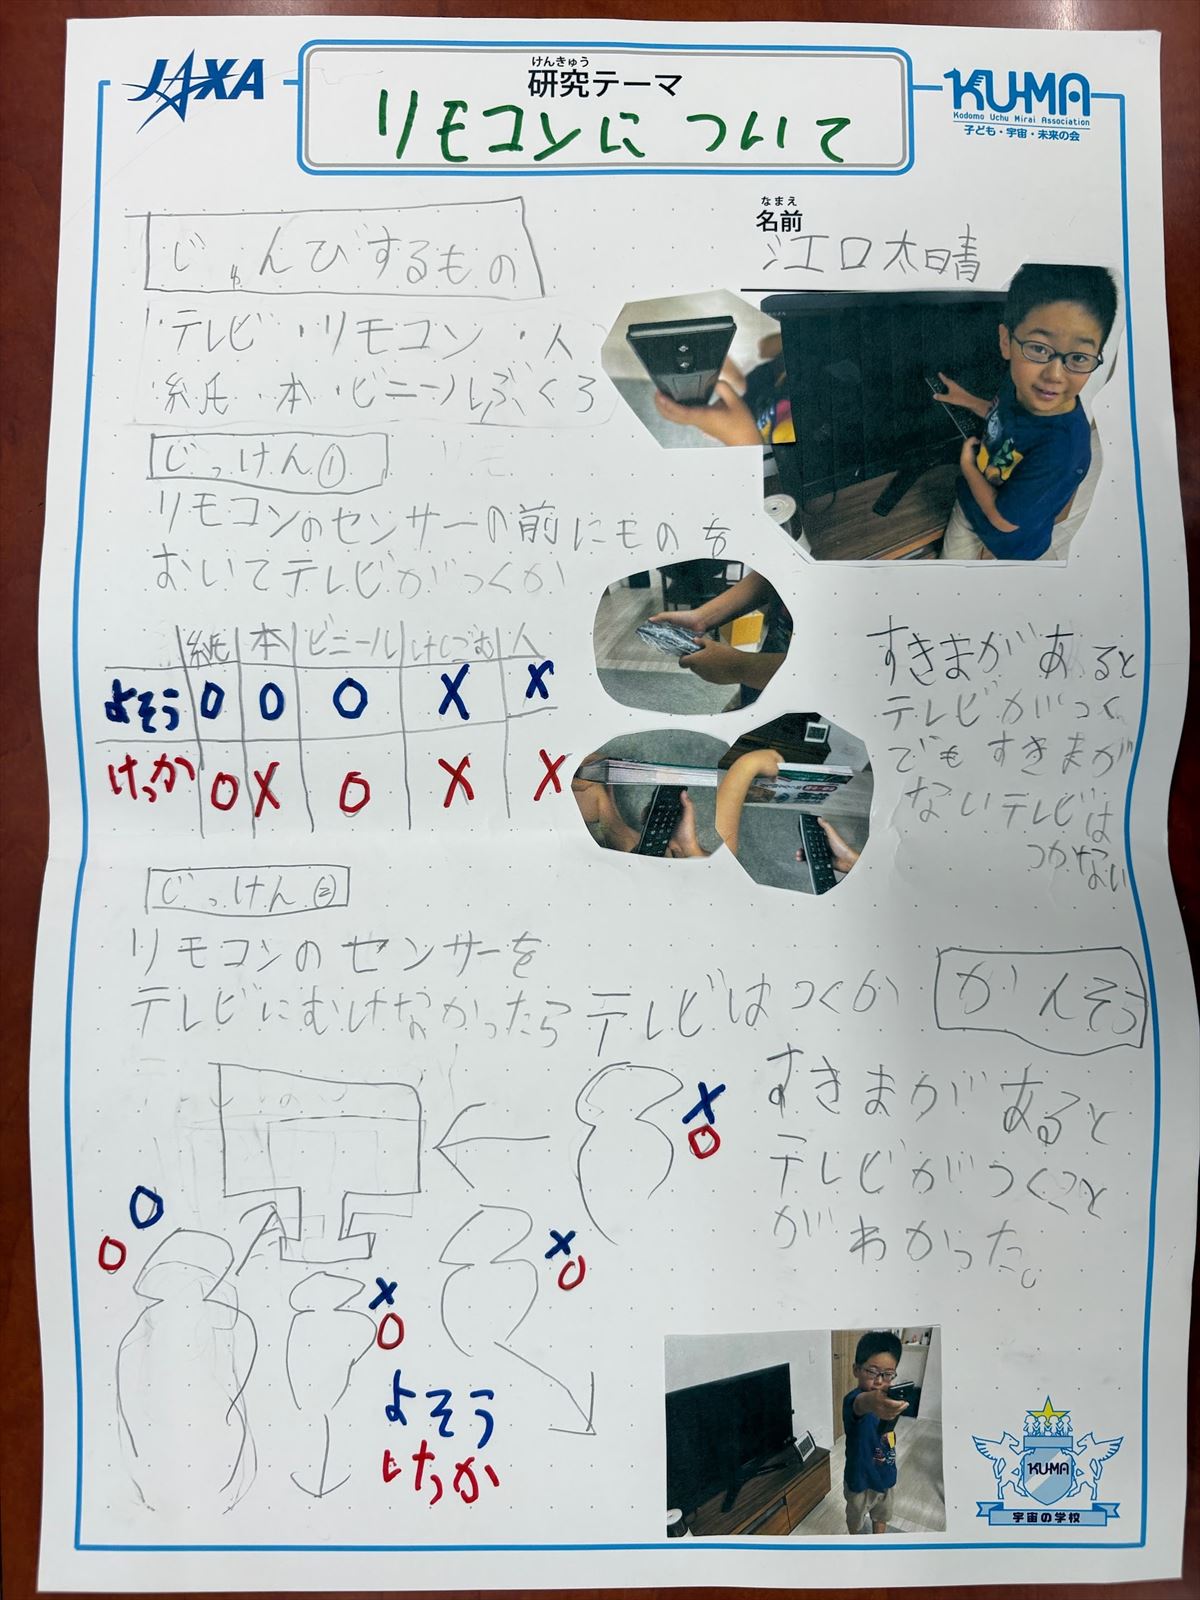 JAXA
けんきゅう
研究テーマ
リモコンについて
KU-MA
Kodomo Uchu Mirai Association
子ども・宇宙・未来の会
なまえ
名前
江口太晴
じゅんびするもの
・テレビ・リモコン・人
・紙・本・ビニールぶくろ
じっけん①
リモコンのセンサーの前にものを
おいてテレビがつくか
紙 本 ビニール けしごむ 人
よそう O O O X X
けっか O X O X X
すきまがあると
テレビがつく
でもすきまが
ないテレビは
つかない
じっけん②
リモコンのセンサーを
テレビにむけなかったらテレビはつくか
X
O
O
O
X
O
X
O
よそう
けっか
かんそう
すきまがあると
テレビがつくこと
がわかった。
KU-MA
宇宙の学校